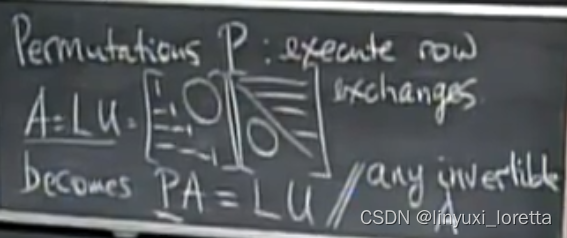 Permutations P: execute row
exchanges
A=LU=[1 1 1 1 0][0]
becomes PA = LU // any invertible
A
CSDN @linyuxi_loretta